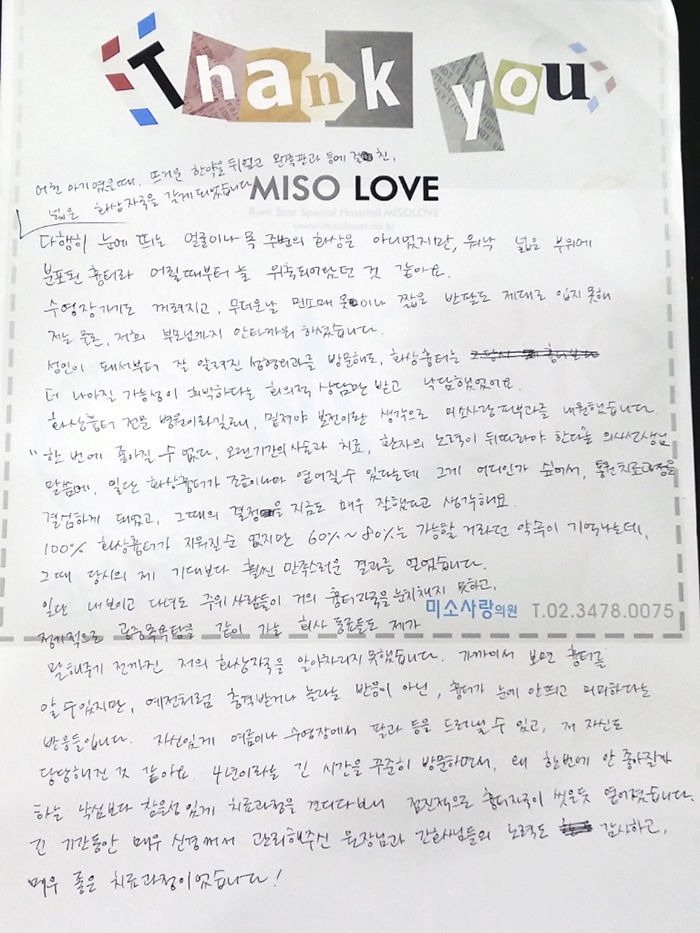 Thank you
어린 아기였을때, 뜨거운 한약을 뒤엎고 왼쪽팔과 등에 걸친,
넓은 화상자국을 갖게 되었습니다.
MISO LOVE
Burn Scar Special Hospital MISOLOVE
www.misolaser.co.kr
다행히 눈에 띄는 얼굴이나 목 주변의 화상은 아니었지만, 워낙 넓은 부위에
분포된 흉터라 어릴때부터 늘 위축되어있던 것 같아요.
수영장가기도 꺼려지고, 무더운날 민소매 옷이나 짧은 반팔도 제대로 입지 못해
저는 물론, 저희 부모님까지 안타까워 하셨습니다.
성인이 돼서부터 잘 알려진 성형외과를 방문해도, 화상흉터는
더 나아질 가능성이 희박하다는 회의적 상담만 받고 낙담했었어요.
화상흉터 전문 병원이라길래, 밑져야 본전이란 생각으로 미소사랑피부과를 내원했습니다.
"한 번에 좋아질 수 없다. 오랜기간의 시술과 치료, 환자의 노력이 뒤따라야 한다"는 의사선생님
말씀에, 일단 화상흉터가 조금이나마 옅어질수 있다는데 그게 어디인가 싶어서, 통원치료과정을
결심하게 되었고, 그때의 결정을 지금도 매우 잘했다고 생각해요.
100% 화상흉터가 지워질순 없지만 60%~80%는 가능할 거라던 약속이 기억나는데,
그때 당시의 제 기대보다 훨씬 만족스러운 결과를 얻었습니다.
일단 내보이고 다녀도 주위 사람들이 거의 흉터자국을 눈치채지 못하고,
미소사랑의원 T.02.3478.0075
정기적으로 공중목욕탕을 같이 가는 회사 동료들도 제가
말해주기 전까진 저의 화상자국을 알아차리지 못했습니다. 가까이서 보면 흉터를
알 수있지만, 예전처럼 충격받거나 놀라는 반응이 아닌, 흉터가 눈에 안띄고 미미하다는
반응들입니다. 자신있게 여름이나 수영장에서 팔과 등을 드러낼 수 있고, 저 자신도
당당해진 것 같아요. 4년이라는 긴 시간을 꾸준히 방문하면서, 왜 한번에 안 좋아질까
하는 낙심보다 참을성 있게 치료과정을 견디다보니 점진적으로 흉터자국이 씻은듯 옅어졌습니다.
긴 기간동안 매우 신경써서 관리해주신 원장님과 간호사님들의 노력도 감사하고,
매우 좋은 치료과정이었습니다!